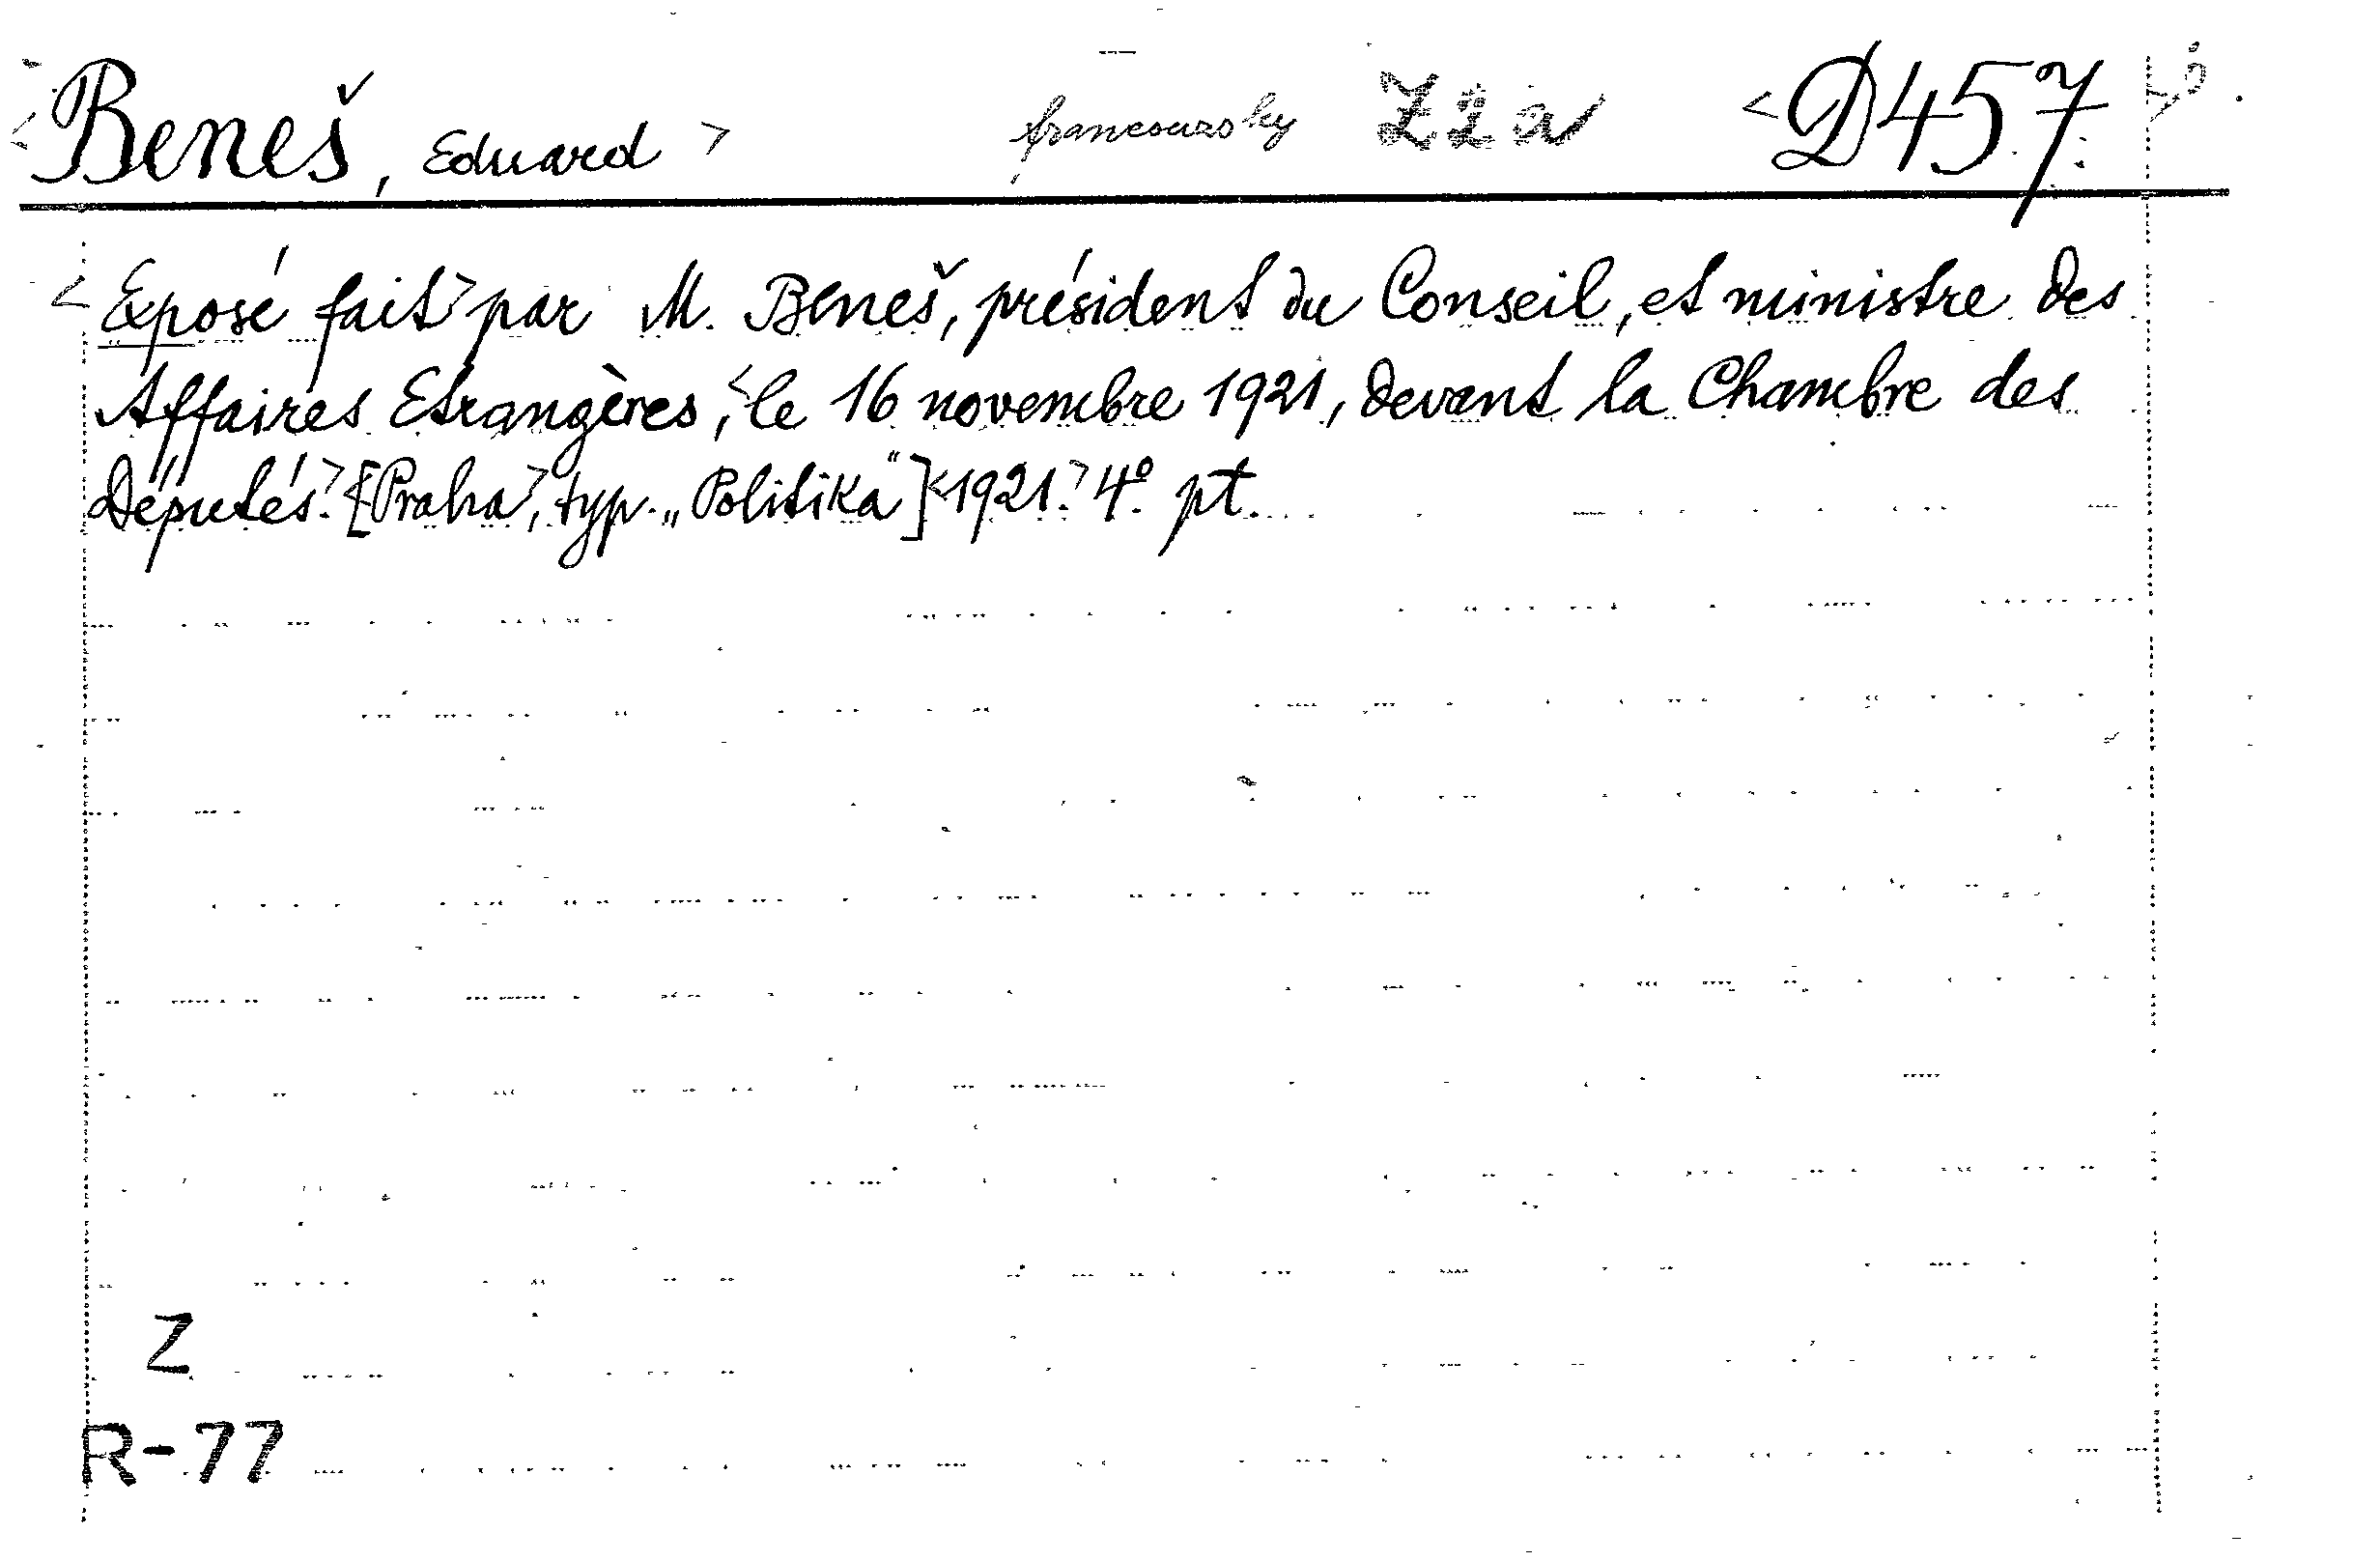 <Beneš, Eduard> francouzsky Z2a <D457>
<Exposé fait> par M. Beneš, président du Conseil, et ministre des
Affaires Etrangères, <le 16 novembre 1921, devant la Chambre des
Députés.> [<Praha>, typ. „Politika“] <1921.> 4º. pt.
Z
R-77